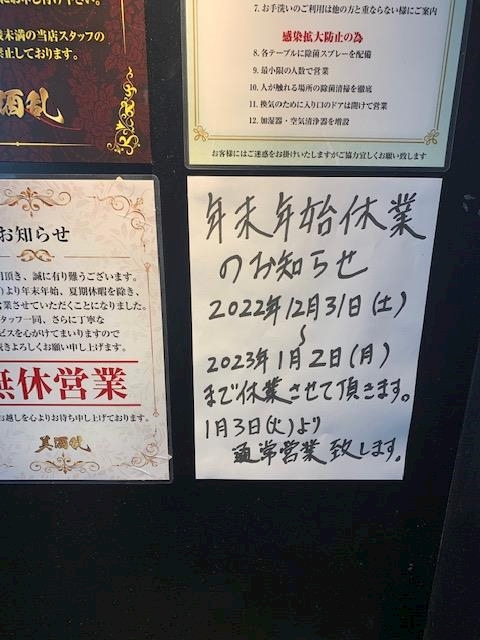 にお申し付け下さい。
歳未満の当店スタッフの
禁止しております。
酒乱
7. お手洗いのご利用は他の方と重ならない様にご案内
感染拡大防止の為
8. 各テーブルに除菌スプレーを配備
9. 最小限の人数で営業
10. 人が触れる場所の除菌清掃を徹底
11. 換気のために入り口のドアは開けて営業
12. 加湿器・空気清浄器を増設
お客様にはご迷惑をお掛けいたしますがご協力宜しくお願い致します
お知らせ
頂き、誠に有り難うございます。
より年末年始、夏期休暇を除き、
営業させていただくことになりました。
タッフ一同、さらに丁寧な
ビスを心がけてまいりますので
きよろしくお願い申し上げます。
無休営業
お越しを心よりお待ち申し上げております。
美酒乱
年末年始休業
のお知らせ
2022年12月31日(土)
〜
2023年1月2日(月)
まで休業させて頂きます。
1月3日(火)より
通常営業致します。